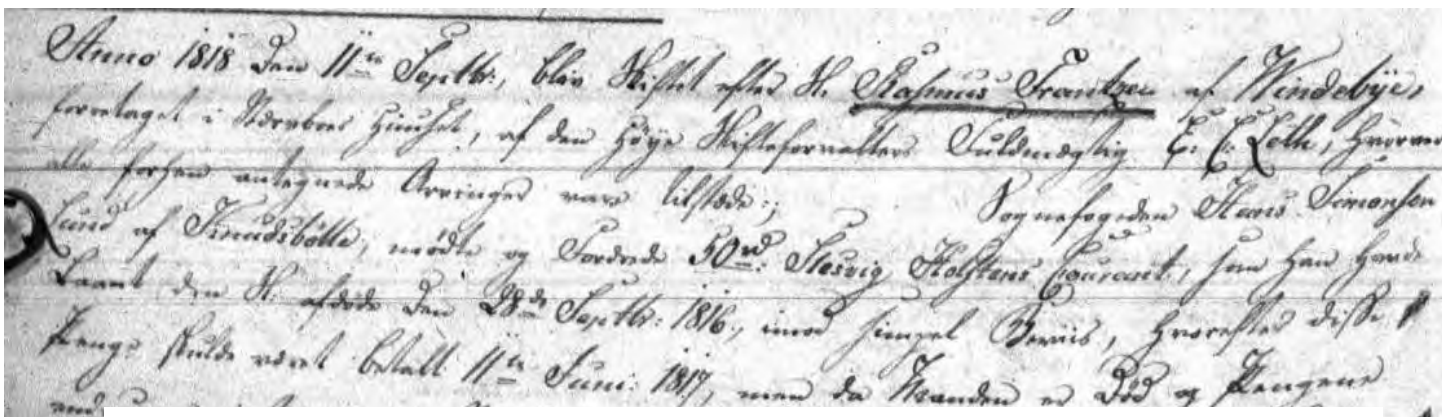 Anno 1818 den 11te Septbr:, blev Skiftet efter S. Rasmus Frantzen af Windebÿe,
foretaget i Stervboes Huuset, af den Höÿe Skifteforvalters Fuldmægtig E. C. Loth, hvorved
alle forhen antegnede Arvinger vare tilstæde;, Sognefogeden Hans Simonsen
Lund af Knudsbölle, mödte og Fordrede 50rd. Slesvig Holstens Courant, som han havde
Laant den S. afdöde den 28de Septbr: 1816, imod simpel Beviis, hvorefter disse
Penge skulde været betalt 11te Juni: 1817, men da Manden er Död og Pengene